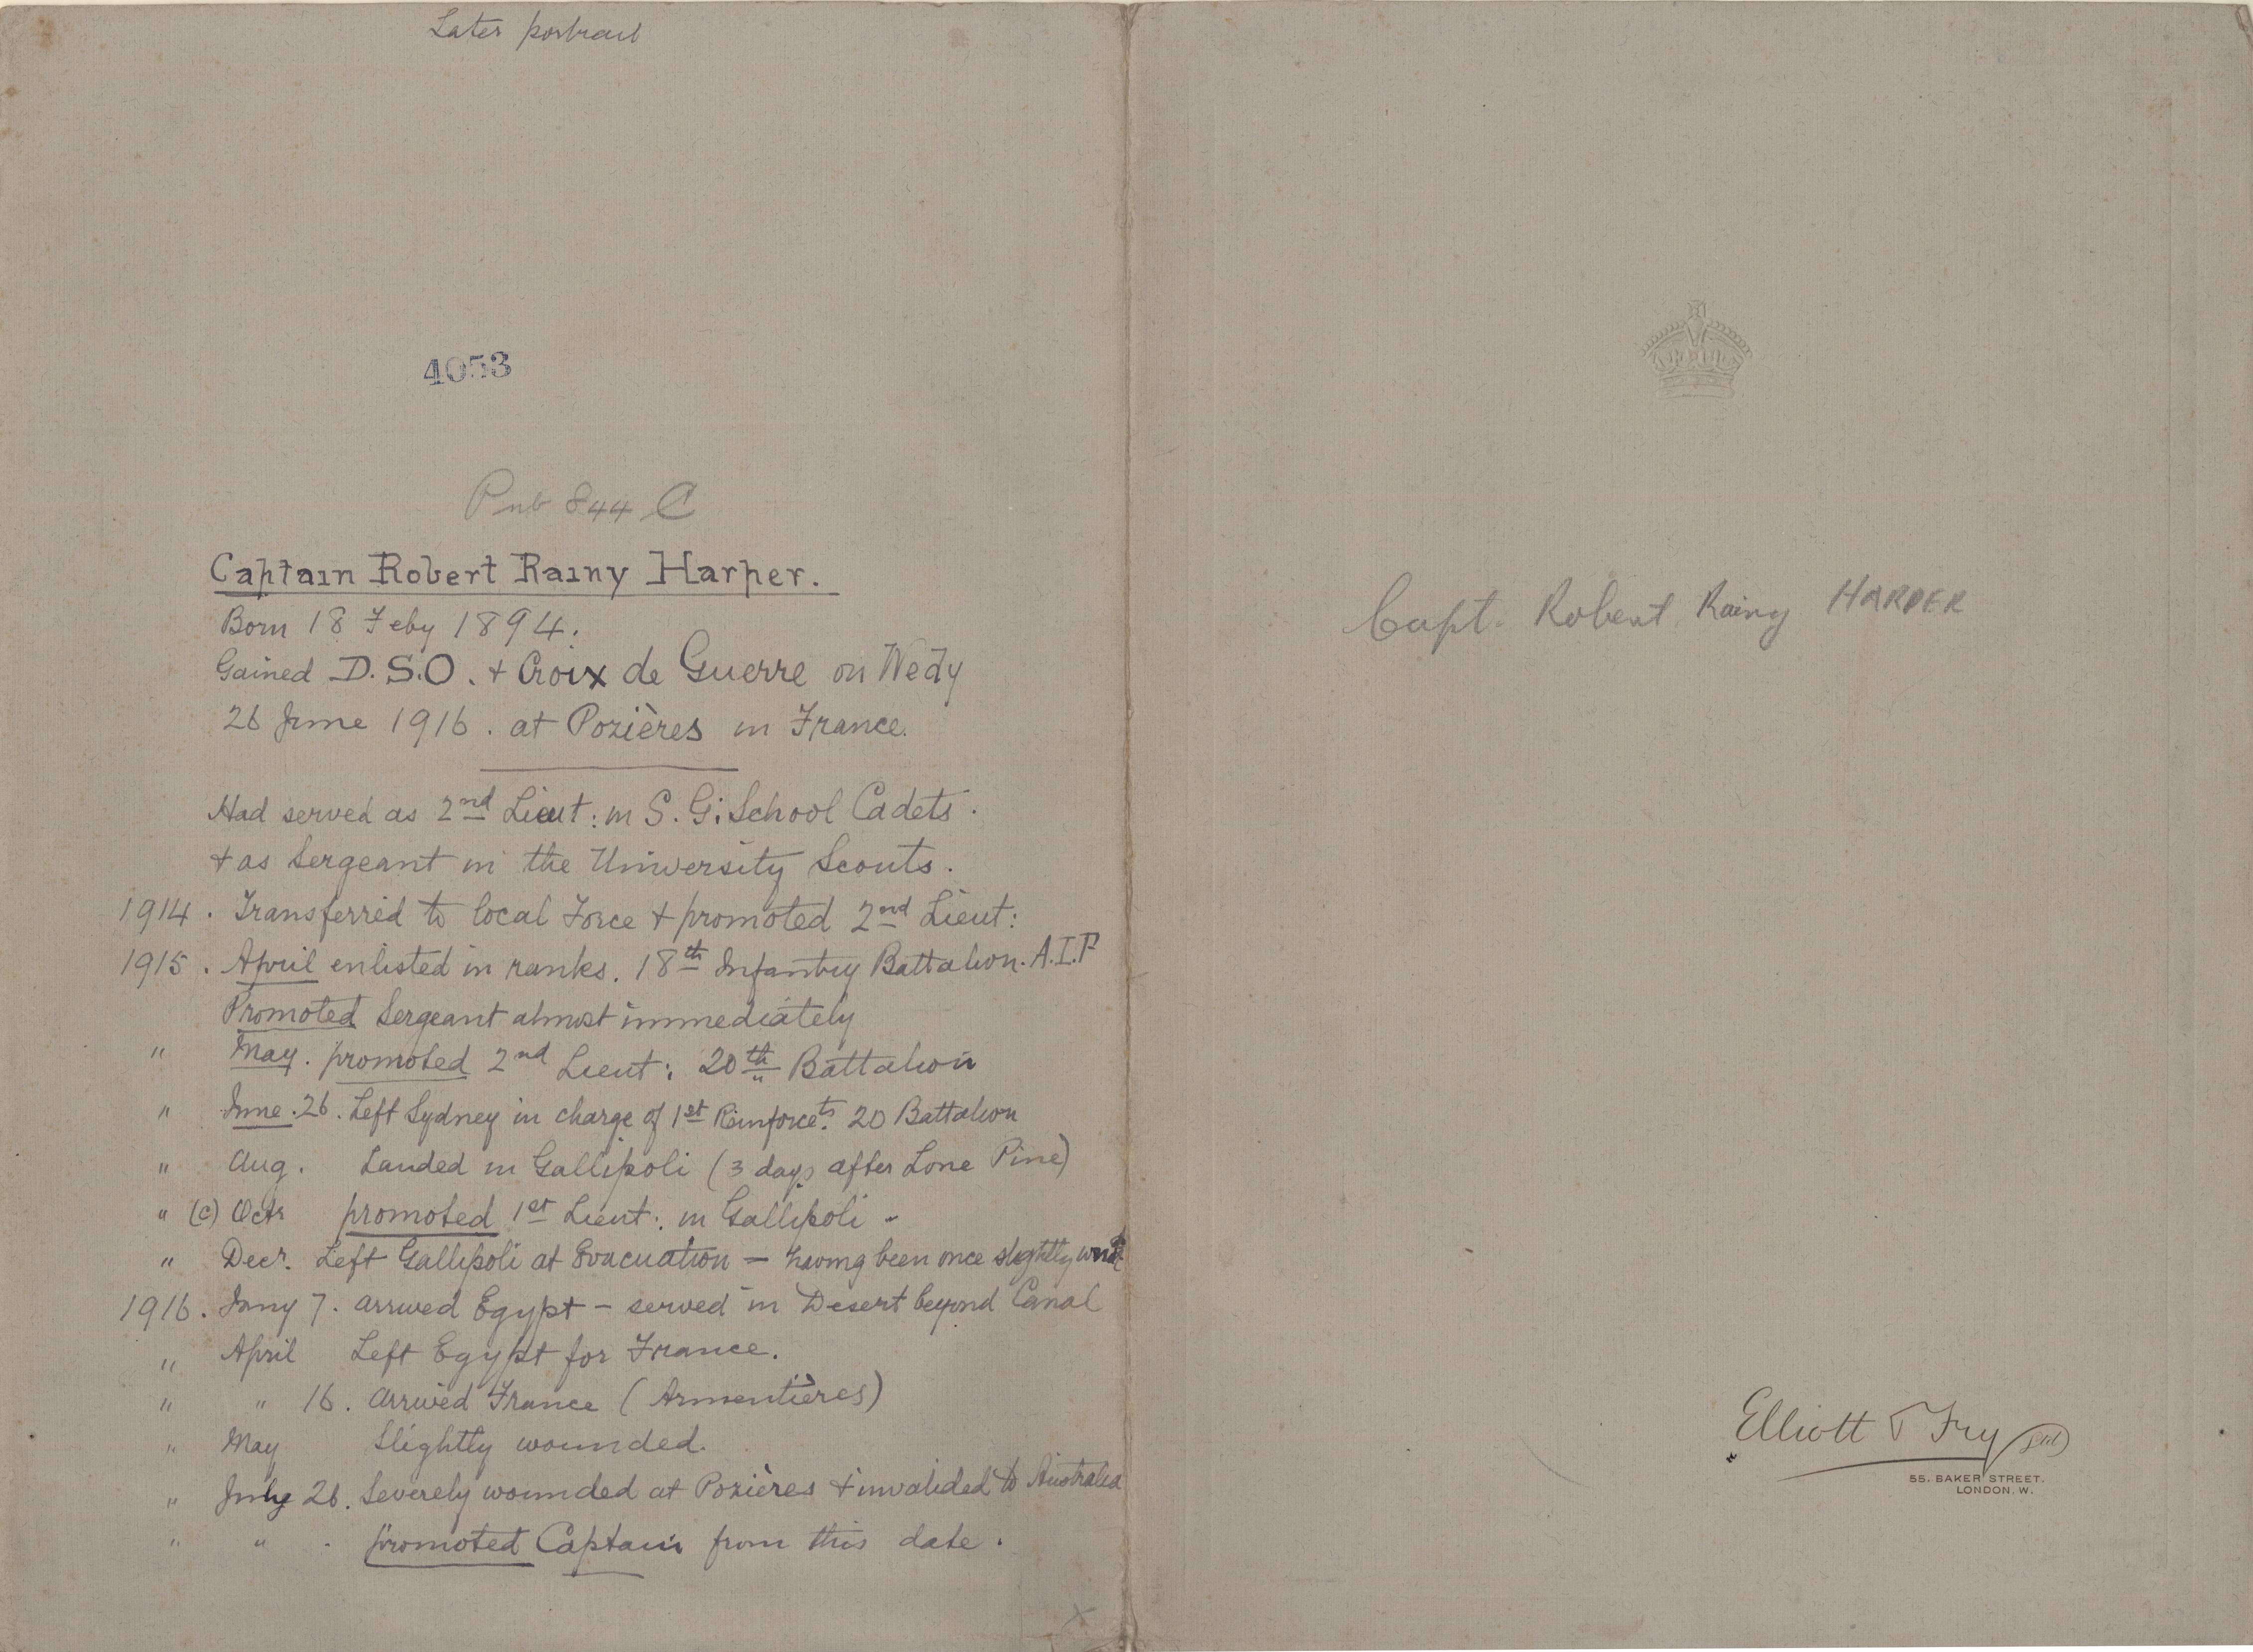 Later portrait
4053
Pub 844 C
Captain Robert Rainy Harper.
Born 18 Feby 1894.
Gained D.S.O. + Croix de Guerre on Wedy
26 June 1916. at Pozières in France.
Had served as 2nd Lieut: in S. G. School Cadets.
+ as Sergeant in the University Scouts.
1914. Transferred to local Force + promoted 2nd Lieut:
1915. April enlisted in ranks. 18th Infantry Battalion. A.I.F
Promoted Sergeant almost immediately
" May. promoted 2nd Lieut: 20th Battalion
" June. 26. Left Sydney in charge of 1st Reinforcets. 20 Battalion
" Aug. Landed in Gallipoli (3 days after Lone Pine)
" (c) Octr promoted 1st Lieut: in Gallipoli -
" Decr. Left Gallipoli at Evacuation - having been once slightly wndd
1916. Jany 7. arrived Egypt - served in Desert beyond Canal
" April Left Egypt for France.
" " 16. Arrived France (Armentières)
" May Slightly wounded.
" July 26. Severely wounded at Pozières + invalided to Australia
" " . promoted Captain from this date.
x
Capt. Robert Rainy HARPER
Elliott & Fry Ltd
55. BAKER STREET.
LONDON. W.